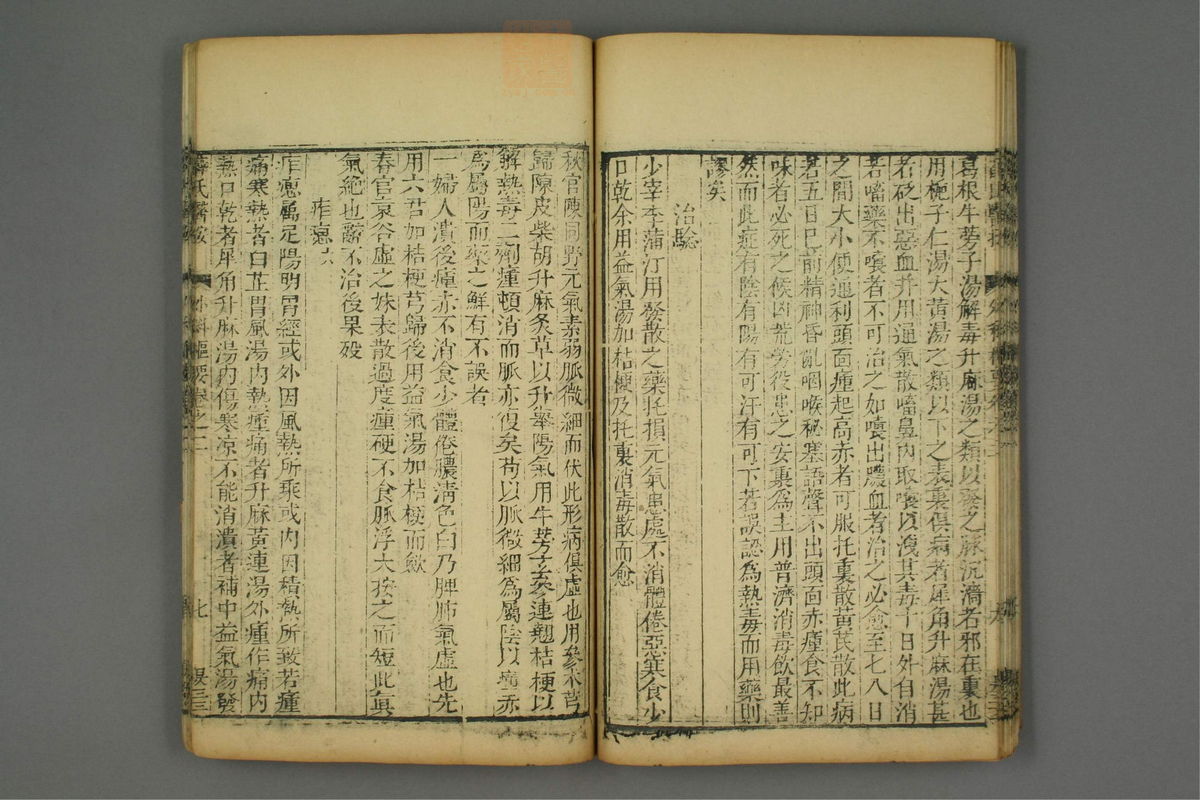 葛根牛蒡子湯解毒升麻湯之類以發之脉沉濇者邪在裏也
用梔子仁湯大黃湯之類以下之表裏俱病者犀角升麻湯甚
者砭出惡血并用通氣散㗜鼻內取嚏以洩其毒十日外自消
若㗜藥不嚏者不可治之如嚏出膿血者治之必愈至七八日
之間大小便通利頭面瘇起高赤者可服托裏散黃芪散此病
若五日已前精神昏亂咽喉秘塞語聲不出頭面赤瘇食不知
味者必死之候因荒勞役患之安裏爲主用普濟消毒飲最善
然而此症有陰有陽有可汗有可下若誤認爲熱毒而用藥則
謬矣
治驗
少宰李蒲汀用發散之藥托損元氣患處不消體倦惡寒食少
口乾余用益氣湯加桔梗及托裏消毒散而愈
秋官陳同野元氣素弱脈微細而伏此形病俱虛也用參朮芎
歸陳皮柴胡升麻炙草以升舉陽氣用牛蒡玄參連翹桔梗以
解熱毒二劑瘇頓消而脈亦復矣苟以脈微細爲屬陰以瘇赤
爲屬陽而藥之鮮有不誤者
一婦人潰後瘇赤不消食少體倦膿清色白乃脾肺氣虛也先
用六君加桔梗芎歸後用益氣湯加桔梗而斂
春官袁谷虛之妹表散過度瘇硬不食脈浮大按之而短此眞
氣絕也辭不治後果歿
痄瘜六
痄瘜屬足陽明胃經或外因風熱所乘或內因積熱所致若瘇
痛寒熱者白芷胃風湯內熱瘇痛者升麻黃連湯外瘇作痛內
熱口乾者犀角升麻湯內傷寒凉不能消潰者補中益氣湯發
薛氏醫按 外科樞要卷之二 七